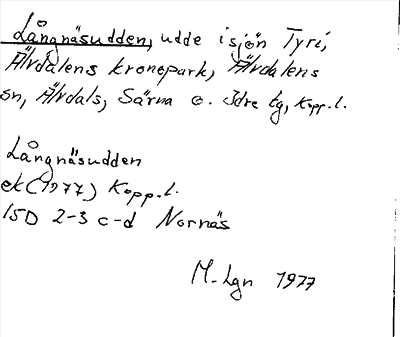 Långnäsudden, udde i sjön Tyri,
Älvdalens kronopark, Älvdalens
sn, Älvdals, Särna o. Idre tg, Kopp.l.
Långnäsudden
ek (1977) Kopp.l.
15D 2-3 c-d Nornäs
M. Lgn 1977